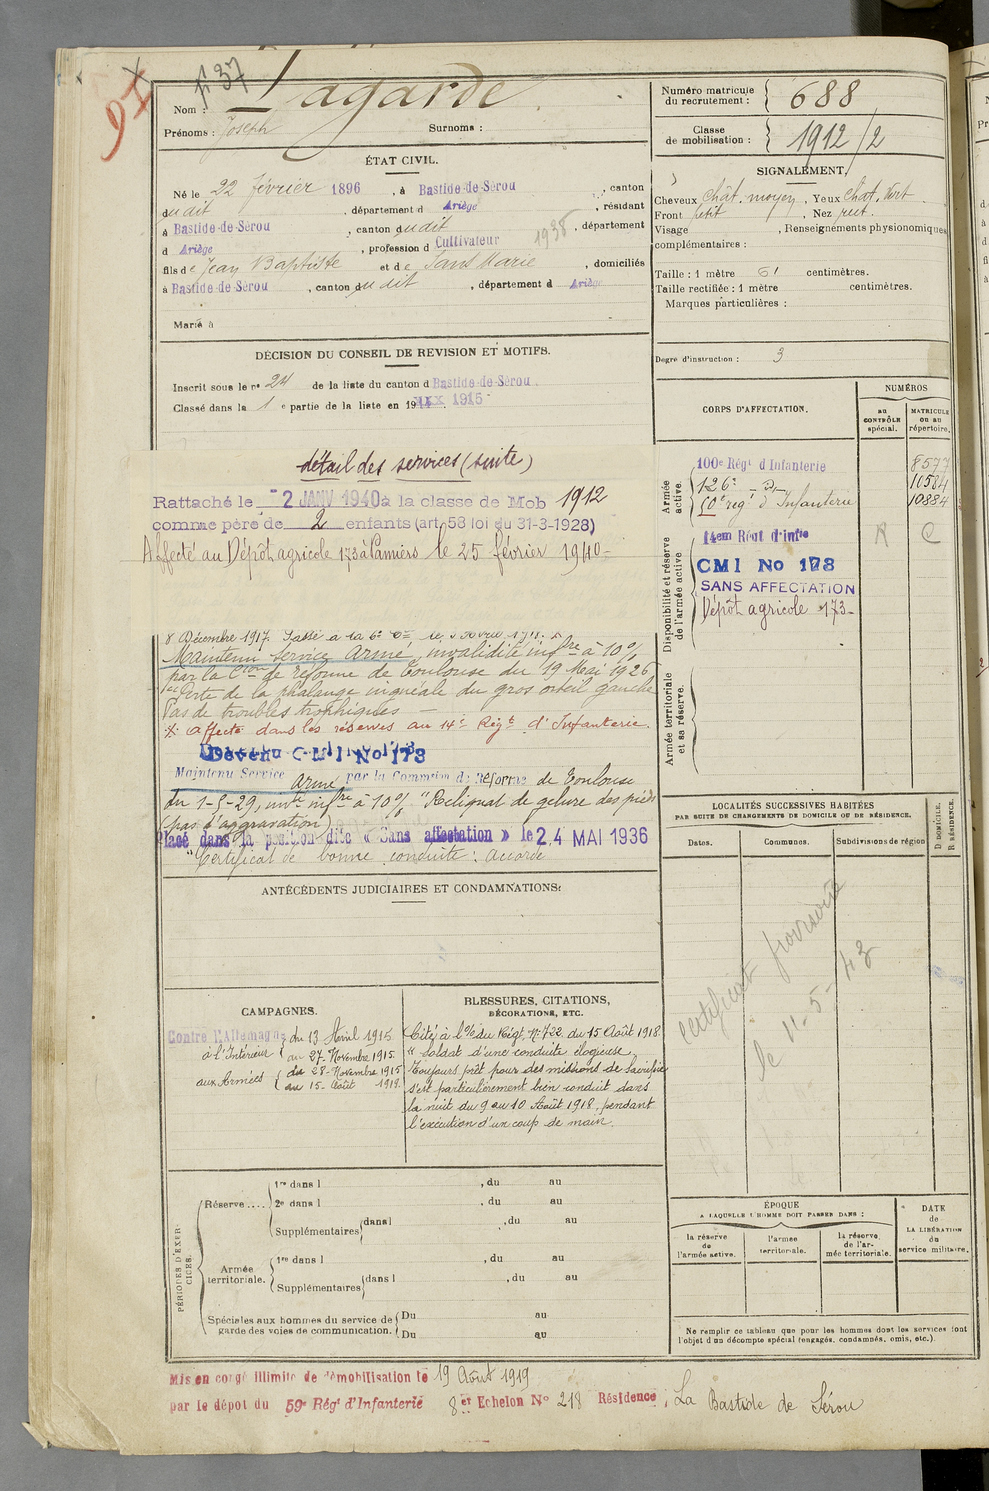 91
n° 37
Nom : Lagarde
Prénoms : Joseph Surnoms :
ÉTAT CIVIL.
Né le 22 février 1896, à Bastide-de-Sérou, canton
dudit, département d Ariège, résidant
à Bastide-de-Sérou, canton dudit, département
d Ariège, profession d Cultivateur 1938
fils de Jean Baptiste et de Sans Marie, domiciliés
à Bastide-de-Sérou, canton dudit, département d Ariège
Marié à
DÉCISION DU CONSEIL DE REVISION ET MOTIFS.
Inscrit sous le n° 24 de la liste du canton d Bastide-de-Sérou.
Classé dans la 1e partie de la liste en 1915
détail des services (suite)
Rattaché le -2 JANV 1940 à la classe de Mob 1912
comme père de 2 enfants (art. 58 loi du 31-3-1928)
Affecté au Dépôt agricole 173 à Pamiers le 25 février 1940-
8 Décembre 1917. Passé à la 6e Cie le
Maintenu service Armé, invalidité infre à 10%
par la Cion de réforme de Toulouse du 19 Mai 1926
Perte de la phalange inguéale du gros orteil gauche
Pas de troubles trophiques -
X: affecté dans les réserves au 14e Régt d'Infanterie.
Devenu C-M-I No 173
Maintenu Service Armé par la Commission de Réforme de Toulouse
du 1-5-29, invté infre à 10% "Reliquat de gelure des pieds
(pas d'aggravation)
Placé dans la position dite « Sans affectation » le 24 MAI 1936
"Certificat de bonne conduite" Accordé
ANTÉCÉDENTS JUDICIAIRES ET CONDAMNATIONS:
CAMPAGNES.
Contre l'Allemagne du 13 Avril 1915
à l'Intérieur au 27-Novembre 1915.
aux Armées du 28-Novembre 1915
au 15-Août 1919.
BLESSURES, CITATIONS,
DÉCORATIONS, ETC.
Cité à l'O/ du Régt, N° 722 du 15 Août 1918
"Soldat d'une conduite élogieuse.
Toujours prêt pour des missions de sacrifice
s'est particulièrement bien conduit dans
la nuit du 9 au 10 Août 1918, pendant
l'exécution d'un coup de main.
PÉRIODES D'EXERCICES.
Réserve....
1re dans l , du au
2e dans l , du au
Supplémentaires dans l , du au
Armée territoriale.
1re dans l , du au
Supplémentaires dans l , du au
Spéciales aux hommes du service de garde des voies de communication.
Du au
Du au
Mis en congé illimité de démobilisation le 19 Août 1919
par le dépôt du 59e Régt d'Infanterie 8er Echelon N° 218 Résidence, La Bastide de Sérou
Numéro matricule du recrutement : 688
Classe de mobilisation : 1912/2
SIGNALEMENT.
Cheveux chât. moyen, Yeux chat. vert.
Front petit, Nez rect.
Visage , Renseignements physionomiques
complémentaires :
Taille : 1 mètre 61 centimètres.
Taille rectifiée : 1 mètre centimètres.
Marques particulières :
Degré d'instruction : 3
CORPS D'AFFECTATION.
NUMÉROS
au CONTRÔLE spécial.
MATRICULE ou au répertoire.
Armée active.
100e Régt d'Infanterie 8577
126e - d° - 10584
50e rég. d'Infanterie 10884
Disponibilité et réserve de l'armée active.
14em Régt d'Infie R C
CMI No 173
SANS AFFECTATION
Dépôt agricole 173-
Armée territoriale et sa réserve.
LOCALITÉS SUCCESSIVES HABITÉES
PAR SUITE DE CHANGEMENTS DE DOMICILE OU DE RÉSIDENCE.
Dates. Communes. Subdivisions de région
D. DOMICILE. R. RÉSIDENCE.
certificat provisoire
le 11-5-43
ÉPOQUE
A LAQUELLE L'HOMME DOIT PASSER DANS :
la réserve de l'armée active.
l'armée territoriale.
la réserve de l'armée territoriale.
DATE de LA LIBÉRATION du service militaire.
Ne remplir ce tableau que pour les hommes dont les services font
l'objet d'un décompte spécial (engagés, condamnés, omis, etc.).